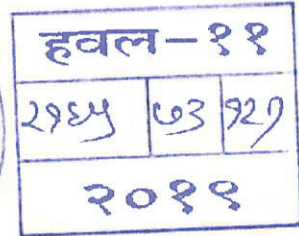 हवल-११
२१६५ ७३ १२१
२०१९